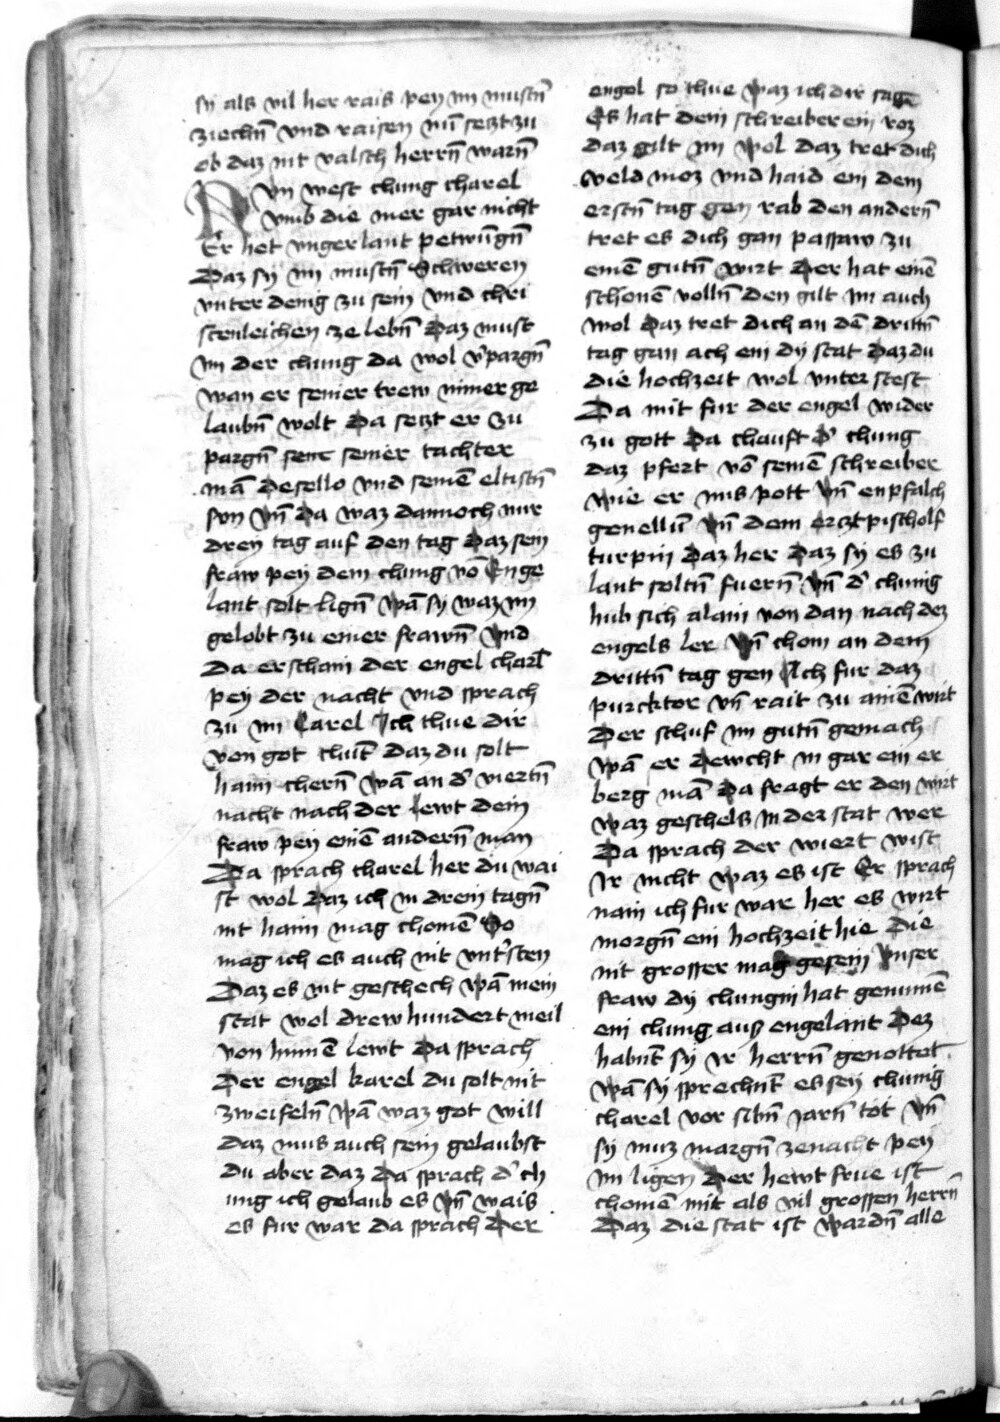 sy als vil her rais pey im mustn̄
ziechn̄ vnd raisen nu᷑ setzt zu
ob daz nit valsch herrn̄ warn̄
Nvn west chunig charel
vmb die mer gar nicht
Er het vngerlant petwu᷑gn̄
Daz sy im mustn̄ Schweren
vnter denig zu sein vnd chri
stenleichen ze lebn̄ Daz must
im der chunig da wol v᷑pargn̄
wan er seiner trew nimer ge
laubn̄ wolt Da setzt er zu
pargn̄ seine seiner tachter
mā Desello vnd seinē eltistn̄
sun vn̄ Da waz dannoch nur
drey tag auf den tag Daz sein
fraw pey dem chunig vō Enge
lant solt lign̄ wā sy waz im
gelobt zu einer frawn̄ vnd
Da erschain der engel charl̄
pey der nacht vnd sprach
zu im Carel Ich thue dir
von got chunt Daz du solt
haim chern̄ wā an d᷑ viertn̄
nacht nach der lewt dein
fraw pey einē andern̄ man
Da sprach charel her du wai
st wol Daz ich in drein tagn̄
nit haim mag chomē So
mag ich es auch nit vnt᷑sten
Daz es nit geschech wā mein
stat wol drew hundert meil
von hinnē lewt Da sprach
Der engel karel du solt nit
zweifeln̄ wā waz got will
daz mus auch sein gelaubst
du aber daz Da sprach d᷑ ch
unig ich gelaub es vn̄ wais
es fur war da sprach Der
engel so thue waz ich dir sage
Es hat dein schreiber ein roz
daz gilt im wol daz tret dich
veld moz vnd haid ein dem
erstn̄ tag gen rab den andern̄
tret es dich gan passaw zu
einē gutn̄ wirt Der hat einē
schonē volln̄ den gilt im auch
wol Daz tret dich an dē drittn̄
tag gan ach ein dy stat Daz du
die hochzeit wol vnter stest
Da mit fur der engel wider
zu gott Da chauft d᷑ chunig
daz pfert vō seinē schreiber
wie er mis pott vn̄ enpfalch
genelluͥ vn̄ dem erztpischolf
turpin daz her Daz sy es zu
lant soltn̄ fuern̄ vn̄ d᷑ chunig
hub sich alain von dan nach dez
engels ler vn̄ chom an dem
drittn̄ tag gen Ach fur daz
purcktor vn̄ rait zu ainē wirt
Der schuf im gutn̄ gemach
wā er dewcht in gar ein er
berg mā Da fragt er den wirt
waz geschels in der stat wer
Da sprach der wiert wist
Ir nicht waz es ist Er sprach
nain ich fur war her es wirt
morgn̄ ein hochzeit hie Die
nit grosser mag gesein vnser
fraw dy chungin hat genumē
ein chunig aus engelant Dez
habnt sy Ir herrn̄ genottet
wā sy sprechnt es sey chunig
charel vor sibn̄ Jarn̄ tot vn̄
sy muz margn̄ zenacht pey
im ligen Der hewt frue ist
chomē mit als vil grossen herrn̄
Daz die stat ist wardn̄ alle